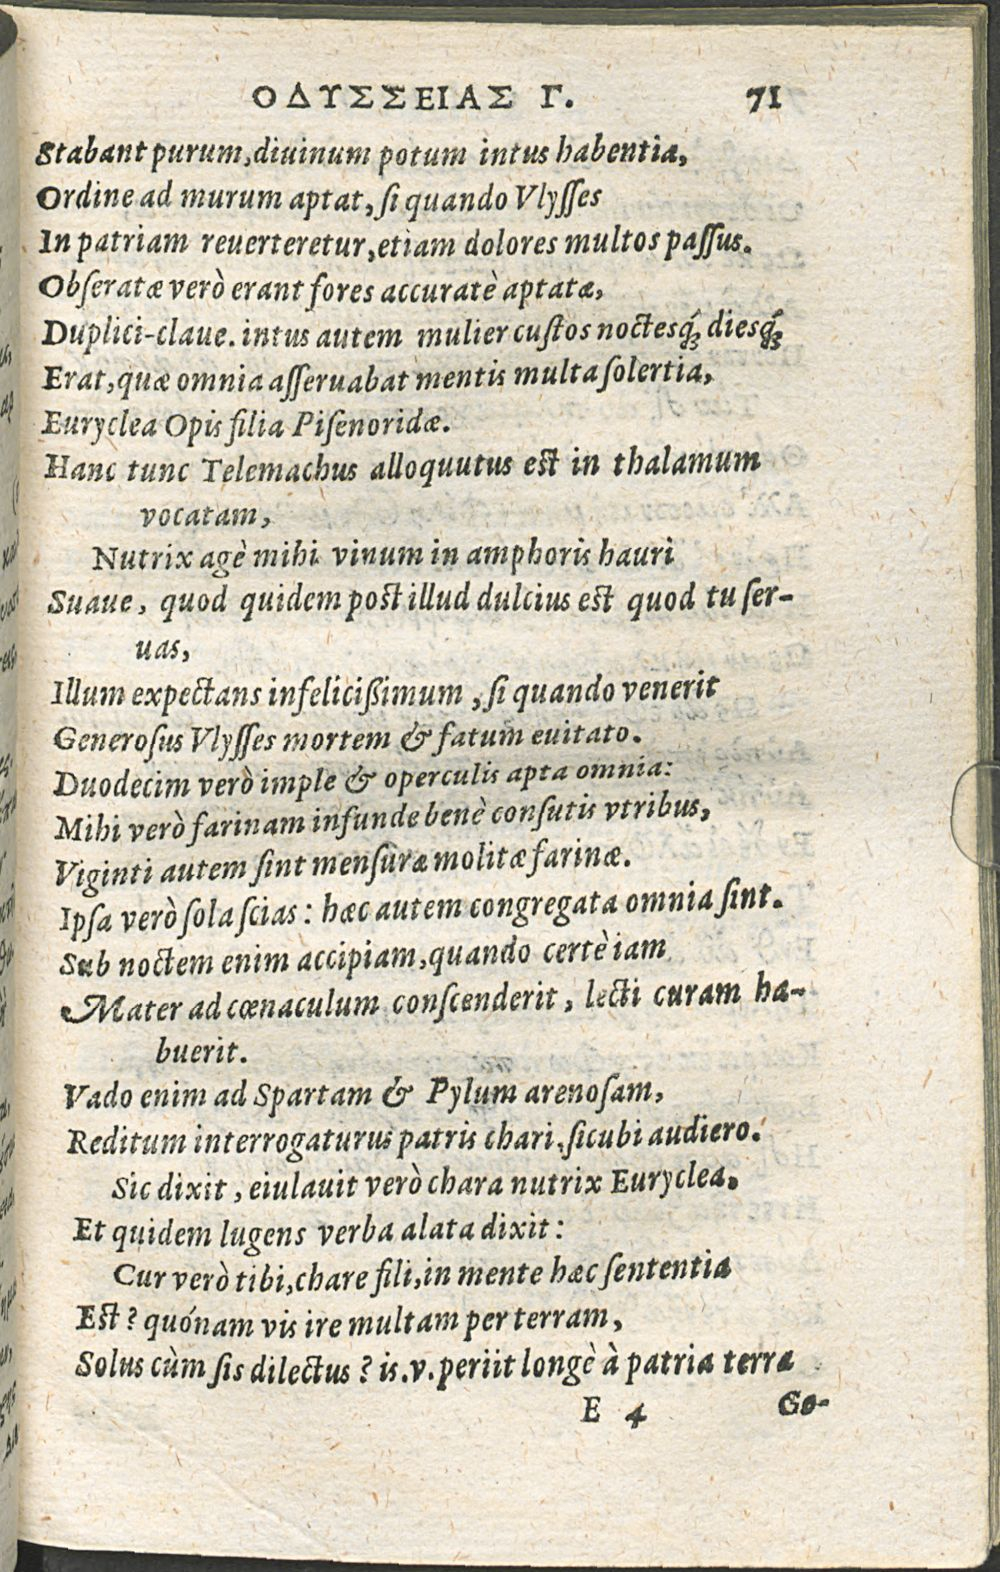 ΟΔΥΣΣΕΙΑΣ Γ. 71
Stabant purum, diuinum potum intus habentia,
Ordine ad murum aptat, ſi quando Vlyſſes
In patriam reuerteretur, etiam dolores multos paſſus.
Obſeratæ verò erant fores accuratè aptatæ,
Duplici-claue. intus autem mulier cuſtos noctesq́; diesq́;
Erat, quæ omnia aſſeruabat mentis multa ſolertia,
Euryclea Opis filia Piſenoridæ.
Hanc tunc Telemachus alloquutus eſt in thalamum
vocatam,
Nutrix agè mihi vinum in amphoris hauri
Suaue, quod quidem poſt illud dulcius eſt quod tu ſer-
uas,
Illum expectans infeliciſsimum, ſi quando venerit
Generoſus Vlyſſes mortem & fatum euitato.
Duodecim verò imple & operculis apta omnia:
Mihi verò farinam infunde benè conſutis vtribus,
Viginti autem ſint menſuræ molitæ farinæ.
Ipſa verò ſola ſcias: hæc autem congregata omnia ſint.
Sub noctem enim accipiam, quando certè iam
Mater ad cœnaculum conſcenderit, lecti curam ha-
buerit.
Vado enim ad Spartam & Pylum arenoſam,
Reditum interrogaturus patris chari, ſicubi audiero.
Sic dixit, eiulauit verò chara nutrix Euryclea,
Et quidem lugens verba alata dixit:
Cur verò tibi, chare fili, in mente hæc ſententia
Eſt? quónam vis ire multam per terram,
Solus cùm ſis dilectus? is.v. periit longè à patria terra
E 4 Ge-